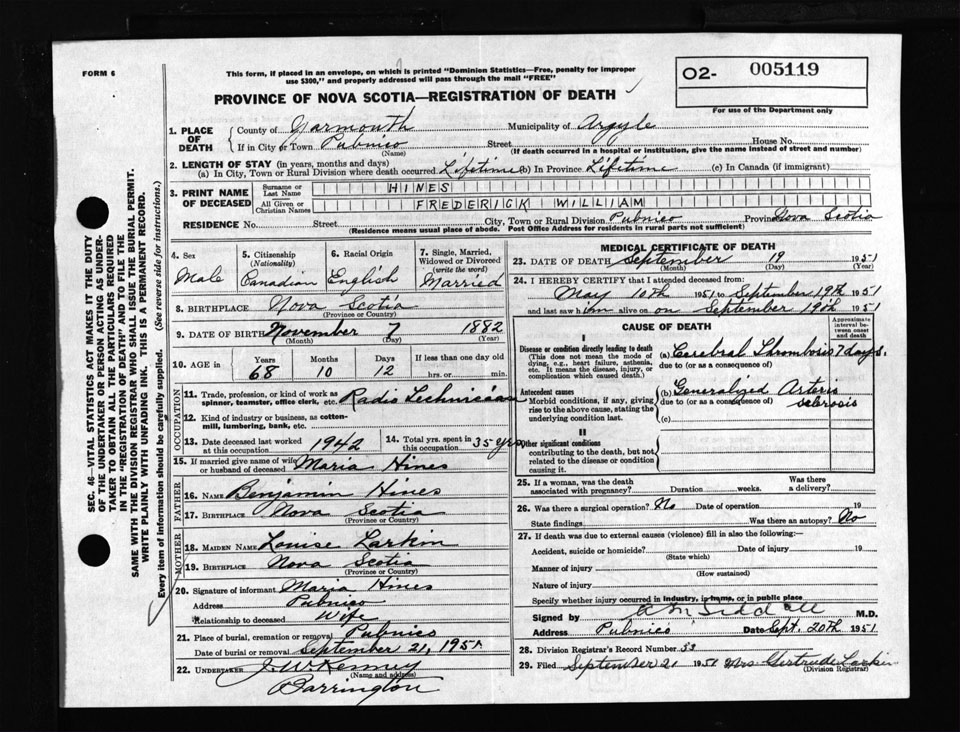 FORM 6
This form, if placed in an envelope, on which is printed "Dominion Statistics—Free, penalty for improper
use $300," and properly addressed will pass through the mail "FREE"
O2- 005119
For use of the Department only
PROVINCE OF NOVA SCOTIA—REGISTRATION OF DEATH
1. PLACE OF DEATH
County of Yarmouth Municipality of Argyle
If in City or Town Pubnico Street House No.
(Name) (If death occurred in a hospital or institution, give the name instead of street and number)
2. LENGTH OF STAY (in years, months and days)
(a) In City, Town or Rural Division where death occurred Lifetime (b) In Province Lifetime (c) In Canada (if immigrant)
3. PRINT NAME OF DECEASED
Surname or Last Name HINES
All Given or Christian Names FREDERICK WILLIAM
RESIDENCE No. Street City, Town or Rural Division Pubnico Province Nova Scotia
(Residence means usual place of abode. Post Office Address for residents in rural parts not sufficient)
4. Sex
Male
5. Citizenship
(Nationality)
Canadian
6. Racial Origin
English
7. Single, Married, Widowed or Divorced
(write the word)
Married
8. BIRTHPLACE Nova Scotia
(Province or Country)
9. DATE OF BIRTH November 7 1882
(Month) (Day) (Year)
10. AGE in
Years Months Days If less than one day old
68 10 12 hrs. or min.
OCCUPATION
11. Trade, profession, or kind of work as
spinner, teamster, office clerk, etc. Radio Technician
12. Kind of industry or business, as cotton-
mill, lumbering, bank, etc.
13. Date deceased last worked
at this occupation 1942
14. Total yrs. spent in
this occupation 35 yrs
15. If married give name of wife
or husband of deceased Maria Hines
FATHER
16. NAME Benjamin Hines
17. BIRTHPLACE Nova Scotia
(Province or Country)
MOTHER
18. MAIDEN NAME Louise Larkin
19. BIRTHPLACE Nova Scotia
(Province or Country)
20. Signature of informant Maria Hines
Address Pubnico
Relationship to deceased Wife
21. Place of burial, cremation or removal Pubnico
Date of burial or removal September 21, 1951
22. UNDERTAKER J. W. Kenney
(Name and address)
Barrington
MEDICAL CERTIFICATE OF DEATH
23. DATE OF DEATH September 19 1951
(Month) (Day) (Year)
24. I HEREBY CERTIFY that I attended deceased from:
May 10th 1951 to September 19th 1951
and last saw him alive on September 19th 1951
CAUSE OF DEATH
Approximate interval between onset and death
I
Disease or condition directly leading to death
(This does not mean the mode of
dying, e.g., heart failure, asthenia,
etc. It means the disease, injury, or
complication which caused death.)
(a) Cerebral Thrombosis 7 days.
due to (or as a consequence of)
Antecedent causes
Morbid conditions, if any, giving
rise to the above cause, stating the
underlying condition last.
(b) Generalized Arterio
due to (or as a consequence of) sclerosis
(c)
II
Other significant conditions
contributing to the death, but not
related to the disease or condition
causing it.
25. If a woman, was the death
associated with pregnancy? Duration weeks. Was there a delivery?
26. Was there a surgical operation? No Date of operation 19
State findings Was there an autopsy? No
27. If death was due to external causes (violence) fill in also the following:—
Accident, suicide or homicide? Date of injury 19
(State which)
Manner of injury
(How sustained)
Nature of injury
Specify whether injury occurred in industry, in home, or in public place
Signed by M.D.
Address Pubnico Date Sept. 20th 1951
28. Division Registrar's Record Number 33
29. Filed September 21 1951 Mrs Gertrude Larkin
(Division Registrar)
SEC. 46—VITAL STATISTICS ACT MAKES IT THE DUTY
OF THE UNDERTAKER OR PERSON ACTING AS UNDER-
TAKER TO OBTAIN ALL THE PARTICULARS REQUIRED
IN THE "REGISTRATION OF DEATH" AND TO FILE THE
SAME WITH THE DIVISION REGISTRAR WHO SHALL ISSUE THE BURIAL PERMIT.
WRITE PLAINLY WITH UNFADING INK. THIS IS A PERMANENT RECORD.
Every item of information should be carefully supplied. (See reverse side for instructions.)